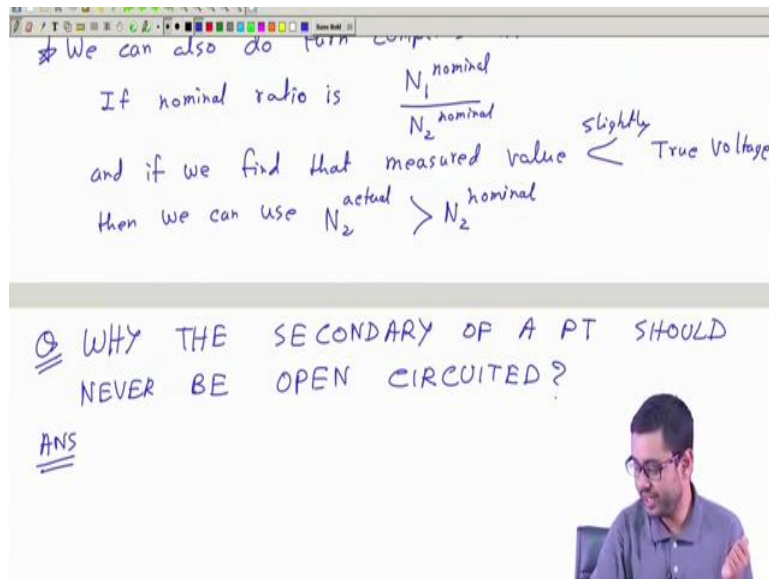 * We can also do turn
If nominal ratio is N₁ nominal / N₂ nominal
and if we find that measured value slightly < True Voltage
then we can use N₂ actual > N₂ nominal
Q WHY THE SECONDARY OF A PT SHOULD
NEVER BE OPEN CIRCUITED?
ANS